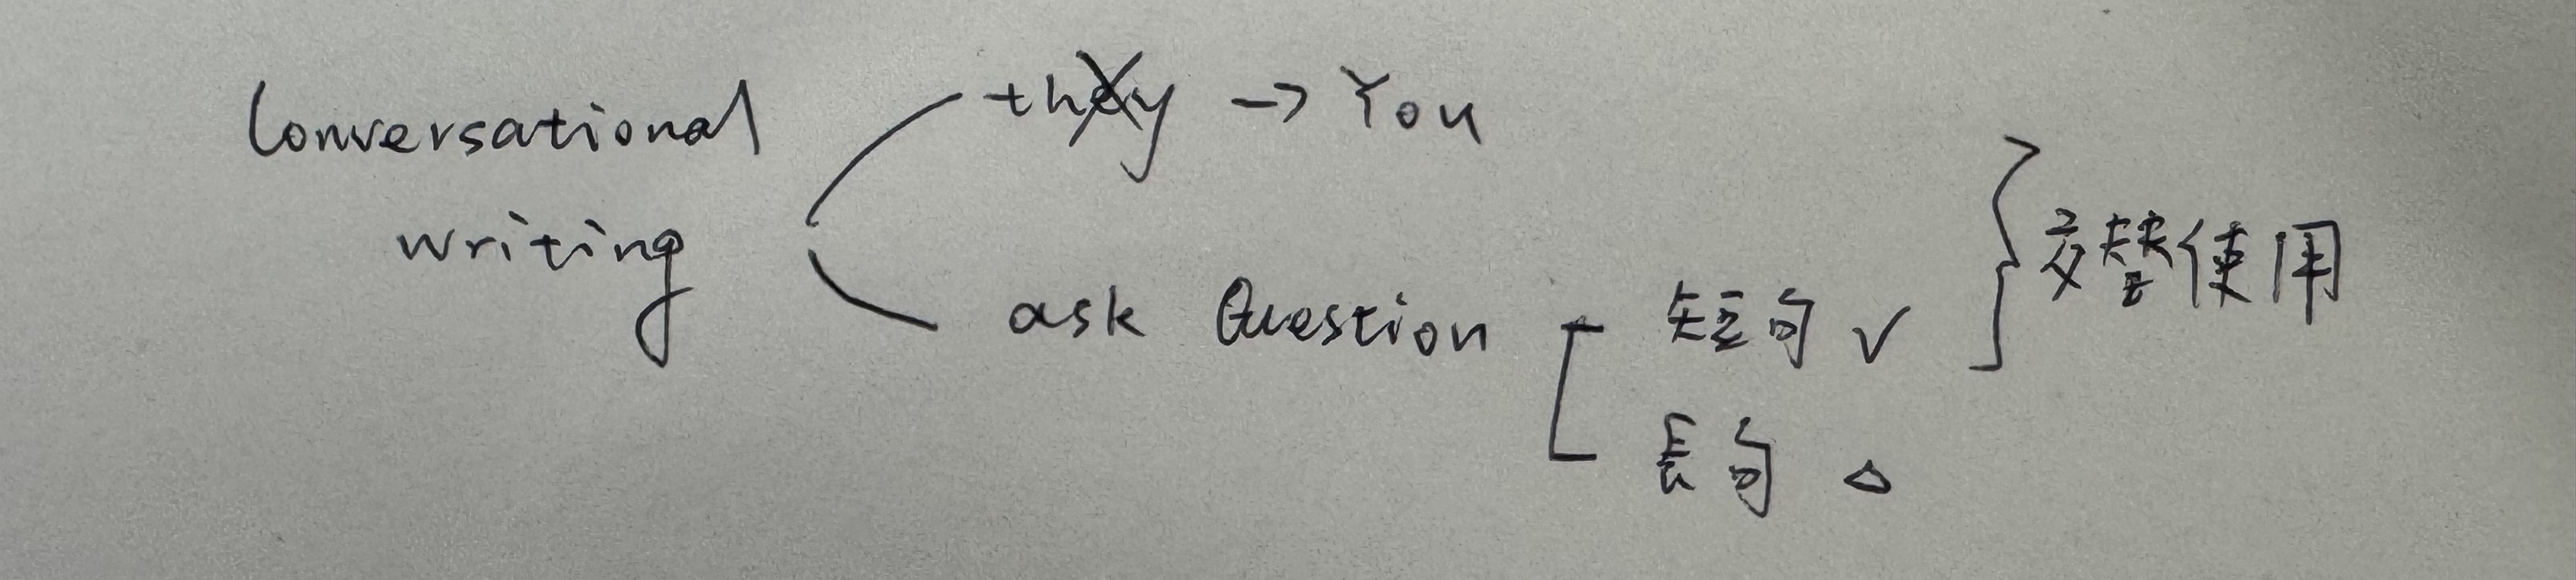 Conversational
writing
they → You
ask Question
短句 ✓
長句 △
交替使用